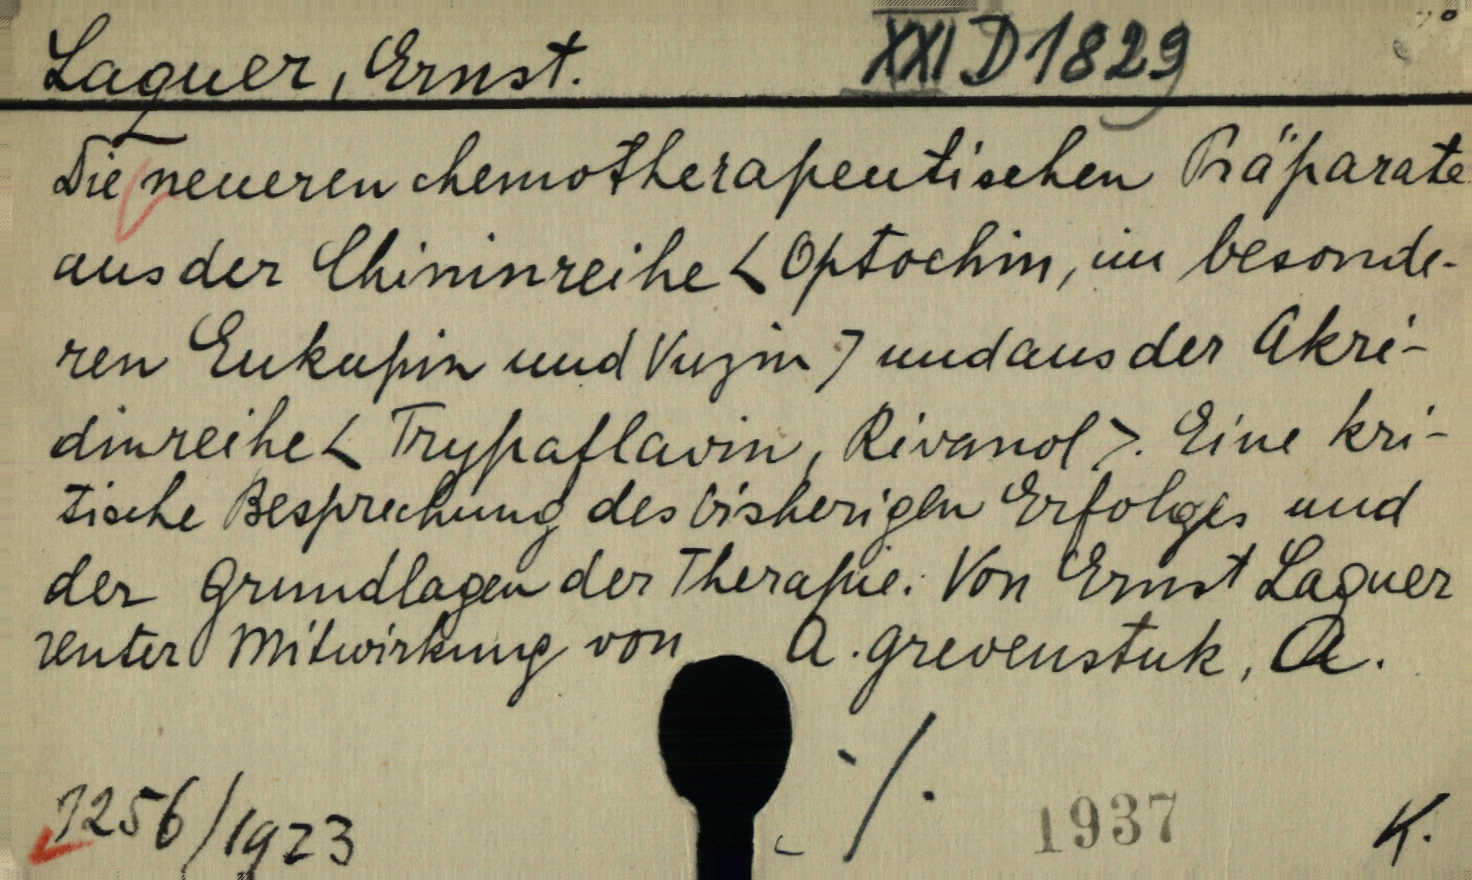 Laquer, Ernst.
XXI D 1829
Die neueren chemotherapeutischen Präparate
aus der Chininreihe < Optochin, im besonde-
ren Eukupin und Vuzin > und aus der Akri-
dinreihe < Trypaflavin, Rivanol >. Eine kri-
tische Besprechung des bisherigen Erfolges und
der Grundlagen der Therapie. Von Ernst Laquer
unter Mitwirkung von A. Grevenstuk, A.
./.
1256/1923
1937
K.